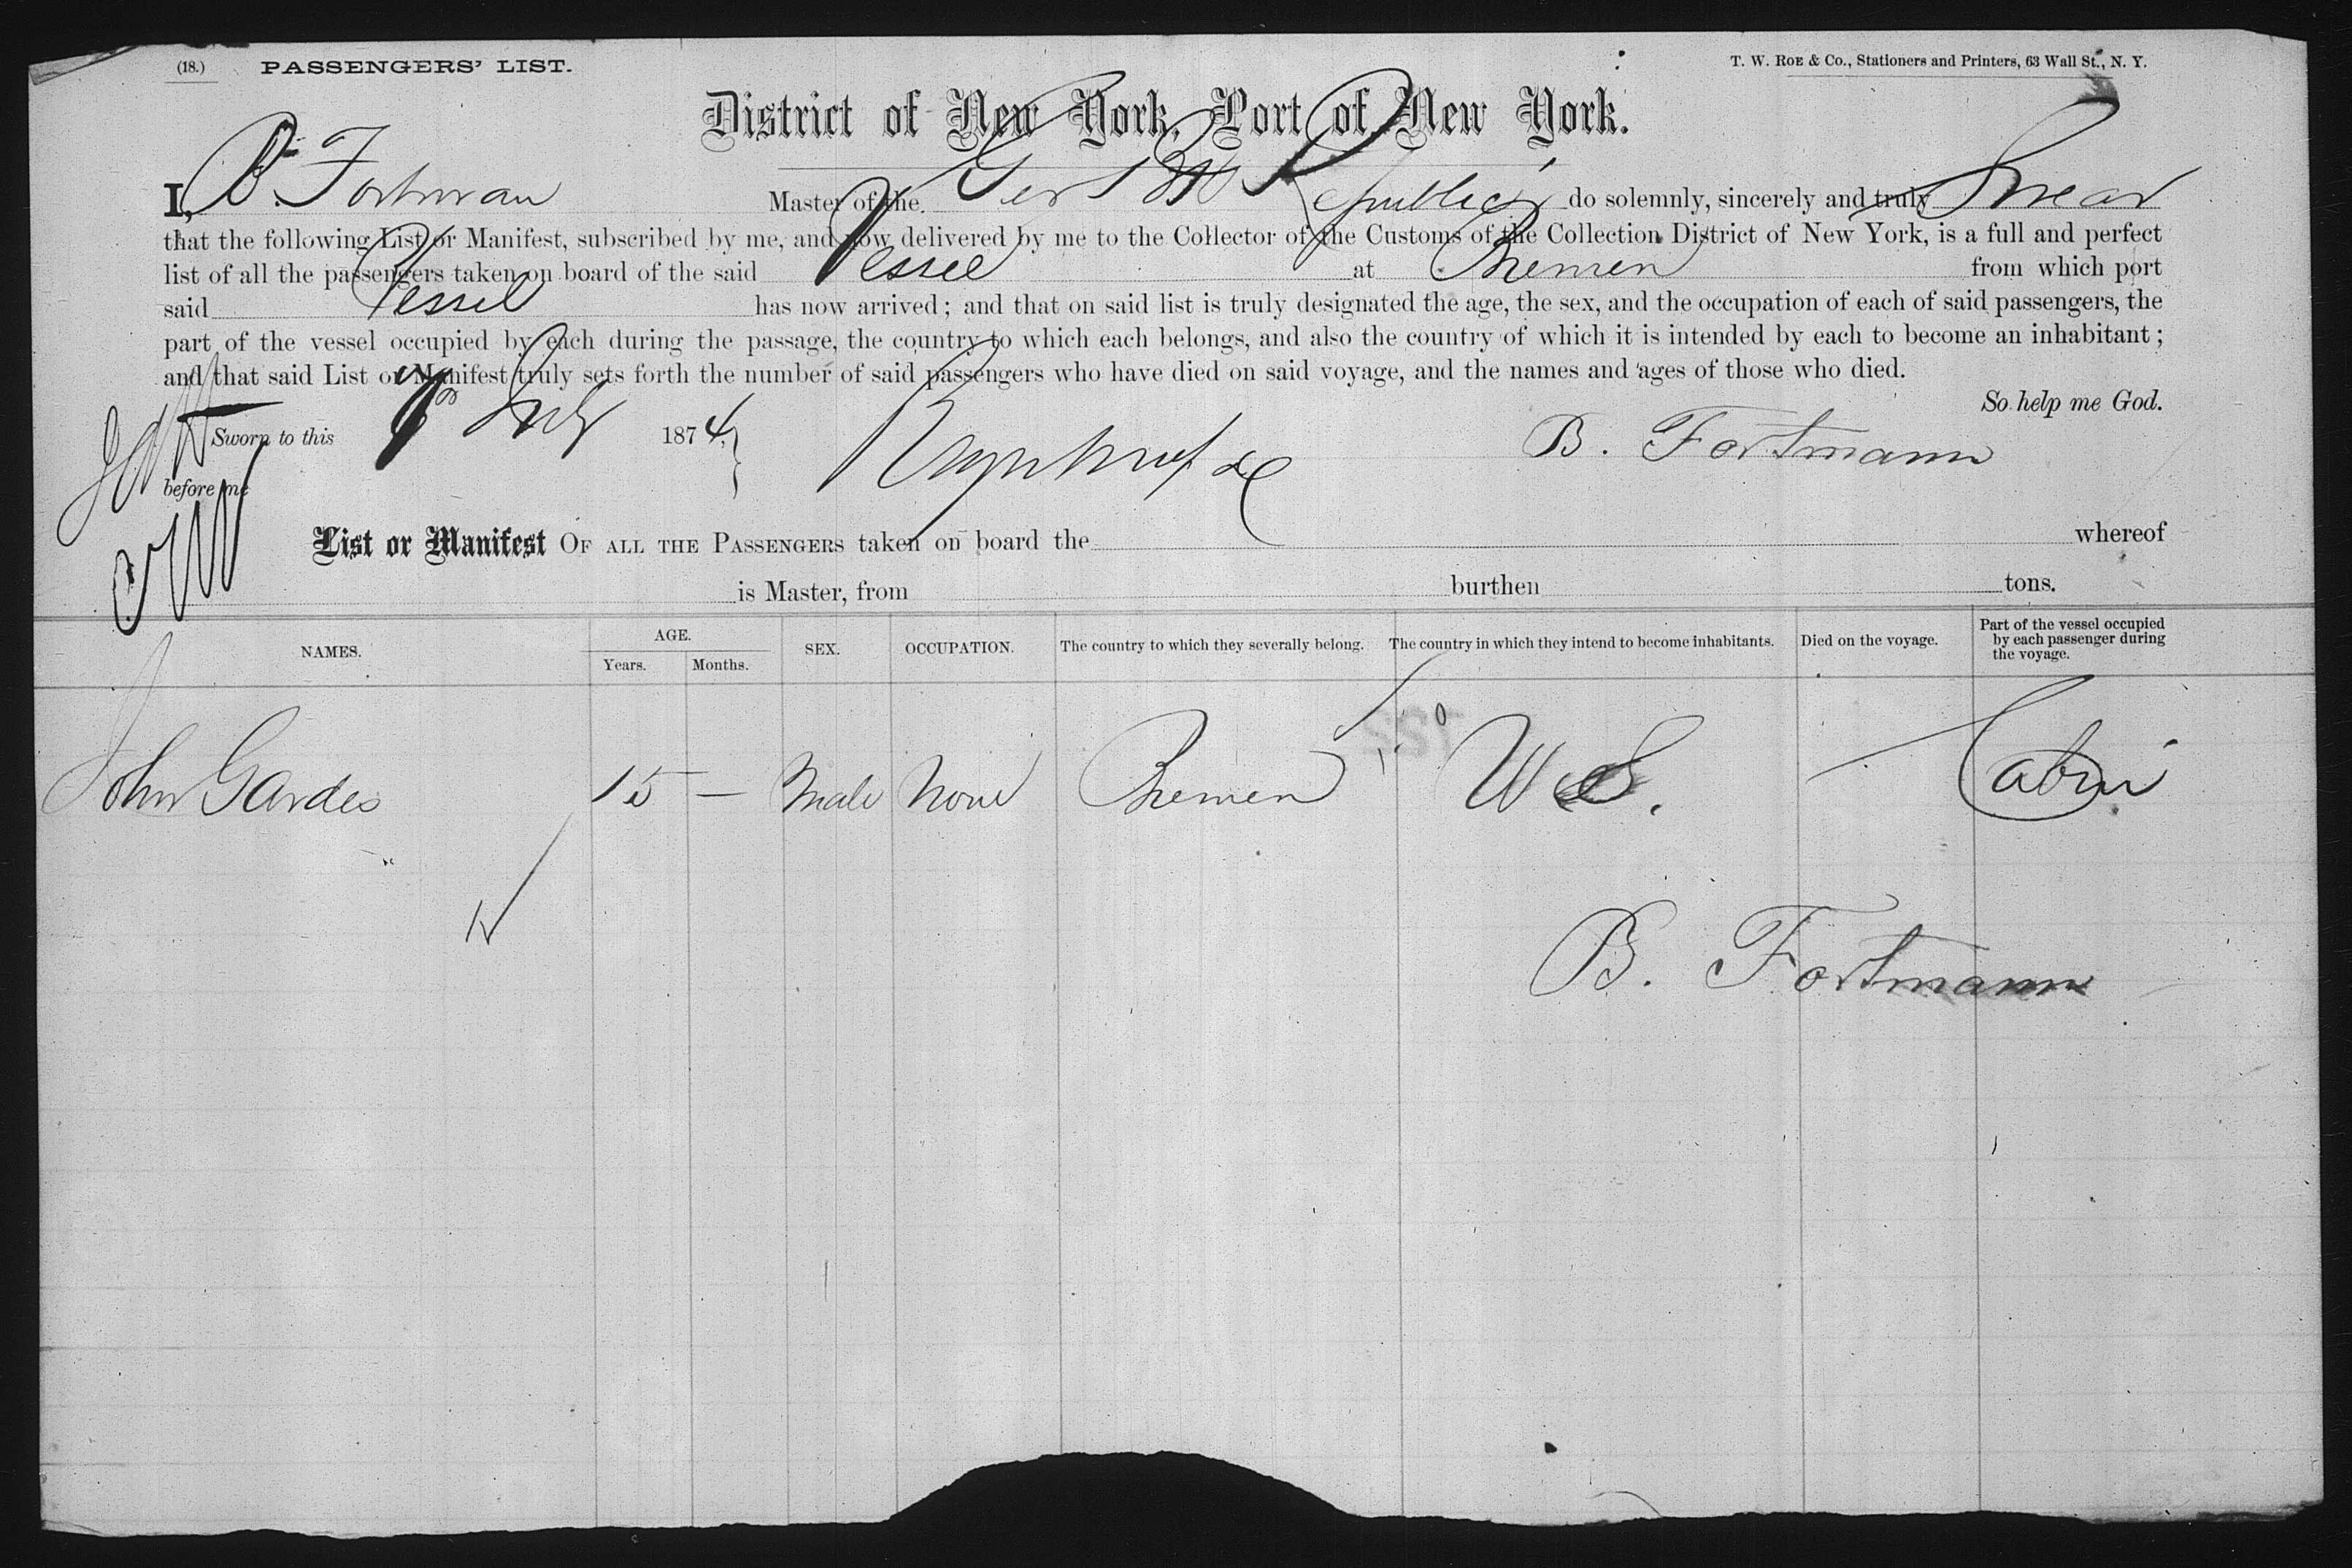 (18.) PASSENGERS' LIST. T. W. ROE & Co., Stationers and Printers, 63 Wall St., N. Y.
District of New York, Port of New York.
I, B. Fortman Master of the Ger Republic do solemnly, sincerely and truly Swear
that the following List or Manifest, subscribed by me, and now delivered by me to the Collector of the Customs of the Collection District of New York, is a full and perfect
list of all the passengers taken on board of the said Vessel at Bremen from which port
said Vessel has now arrived; and that on said list is truly designated the age, the sex, and the occupation of each of said passengers, the
part of the vessel occupied by each during the passage, the country to which each belongs, and also the country of which it is intended by each to become an inhabitant;
and that said List or Manifest truly sets forth the number of said passengers who have died on said voyage, and the names and ages of those who died.
So help me God.
Sworn to this July 1874, B. Fortmann
before me
List or Manifest OF ALL THE PASSENGERS taken on board the whereof
is Master, from burthen tons.
NAMES. AGE. Years. Months. SEX. OCCUPATION. The country to which they severally belong. The country in which they intend to become inhabitants. Died on the voyage. Part of the vessel occupied by each passenger during the voyage.
John Gardes 15 — Male None Bremen U S. Cabin
B. Fortmann